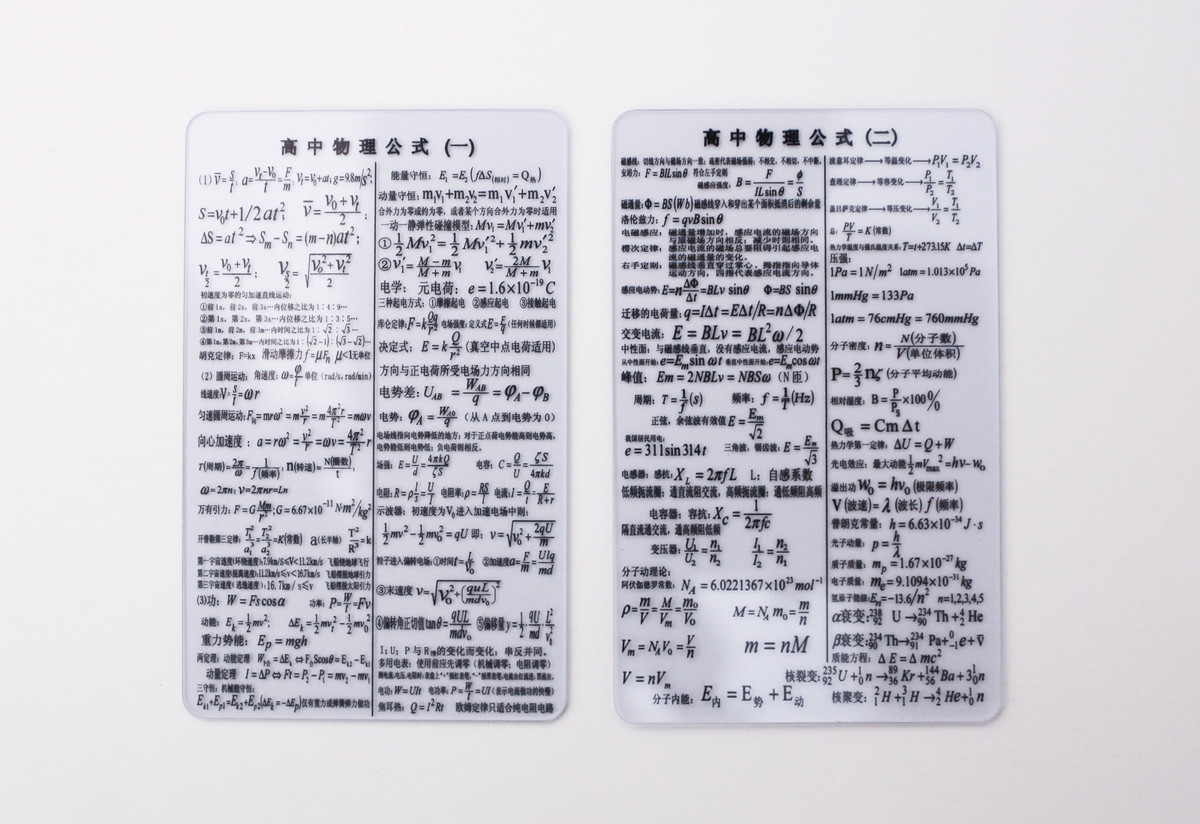 高中物理公式 (一)
(1) v̄=s/t, a=(Vt-V0)/t=F/m, Vt=V0+at; g=9.8m/s²;
S=V0t+1/2at²; v̄=(V0+Vt)/2;
ΔS=at²⇒Sm-Sn=(m-n)at²;
Vt/2=(V0+Vt)/2; Vs/2=√((V0²+Vt²)/2)
初速度为零的匀加速直线运动:
①前1s, 前2s, 前3s…内位移之比为1:4:9…
②第1s, 第2s, 第3s…内位移之比为1:3:5…
③前1m, 前2m, 前3m…内时间之比为1:√2:√3…
④第1m, 第2m, 第3m…内时间之比为1:(√2-1):(√3-√2)…
胡克定律: F=kx 滑动摩擦力f=μFn μ<1无单位
(2) 圆周运动: 角速度: ω=φ/t 单位 (rad/s, rad/min)
线速度V=s/t=ωr
匀速圆周运动:F向=mrω²=mv²/r=m4π²r/T²=mωv
向心加速度: a=rω²=v²/r=ωv=4π²/T² r
T(周期)=2π/ω=1/f(频率), n(转速)=N(圈数)/t,
ω=2πn; V=2πnr=Ln
万有引力: F=GMm/r²;G=6.67×10⁻¹¹N·m²/kg²
开普勒第三定律: T1²/a1³=T2²/a2³=K(常数) a(长半轴) T²/R³=k
第一宇宙速度(环绕速度)7.9km/s≤V<11.2km/s 飞船绕地球飞行
第二宇宙速度(脱离速度)11.2km/s≤v<16.7km/s 飞船摆脱地球引力
第三宇宙速度(逃逸速度):16.7km/s≤v 飞船摆脱太阳引力
(3)功: W=Fscosα 功率: P=W/t=Fv
动能: Ek=1/2mv²; ΔEk=1/2mvt²-1/2mv0²
重力势能: Ep=mgh
两定理: 动能定理 W合=ΔEk⇔F合Scosθ=Ek2-Ek1
动量定理 I=ΔP⇔Ft=P2-P1=mv2-mv1
三守恒: 机械能守恒:
Ek1+Ep1=Ek2+Ep2(ΔEk=-ΔEp)仅有重力或弹簧弹力做功
能量守恒: E1=E2(fΔS(相对)=Q热)
动量守恒:m1v1+m2v2=m1v1′+m2v2′
合外力为零或的为零, 或者某个方向合外力为零时适用
一动一静弹性碰撞模型: Mv1=Mv1′+mv2′
①1/2Mv1²=1/2Mv1′²+1/2mv2′²
②v1′=(M-m)/(M+m)v1 v2′=2M/(M+m)v1
电学: 元电荷: e=1.6×10⁻¹⁹C
三种起电方式: ①摩擦起电 ②感应起电 ③接触起电
库仑定律:F=kQq/r² 电场强度:定义式E=F/q(任何时候都适用)
决定式: E=kQ/r²(真空中点电荷适用)
方向与正电荷所受电场力方向相同
电势差:UAB=WAB/q=φA-φB
电势: φA=WA0/q (从A点到电势为0)
电场线指向电势降低的地方; 对于正点荷电势能高则电势高,
电势能低则电势低; 负电荷则相反。
场强: E=U/d=4πkQ/ζS 电容: C=Q/U=ζS/4πkd
电阻:R=ρl/s=U/I 电阻率:ρ=RS/l 电流:I=Q/t=E/(R+r)
示波器: 初速度为V0进入加速电场中则:
1/2mv²-1/2mv0²=qU 即: v=√(v0²+2qU/m)
粒子进入偏转电场:①时间t=L/V0 ②加速度a=F/m=Uq/md
③末速度 v=√(v0²+(quL/mdv0)²)
④偏转角正切值tanθ=qUL/mdv0² ⑤偏移量y=1/2·qU/md·L²/v0²
I; U; P与R的变化而变化; 串反并同。
多用电表: 使用前应先调零 (机械调零; 电阻调零)
电功: W=UIt 电功率: P=W/t=UI(表示电流做功的快慢)
焦耳热: Q=I²Rt 欧姆定律只适合纯电阻电路
高中物理公式 (二)
磁感线: 切线方向与磁场方向一致; 疏密代表磁场强弱; 不相交, 不相切, 不中断。
安培力: F=BILsinθ 符合左手定则
磁感应强度: B=F/ILsinθ=Φ/S
磁通量:Φ=BS(Wb)磁感线穿入和穿出某个面积抵消后的剩余量
洛伦兹力: f=qvBsinθ
电磁感应: 磁通量增加时, 感应电流的磁场方向
与原磁场方向相反; 减少时则相同。
楞次定律: 感应电流的磁场总要阻碍引起感应电
流的磁通量的变化。
右手定则: 磁感线垂直穿过掌心, 拇指指向导体
运动方向, 四指代表感应电流方向。
感应电动势:E=nΔΦ/Δt=BLv sinθ Φ=BS sinθ
迁移的电荷量:q=IΔt=EΔt/R=nΔΦ/R
交变电流: E=BLv=BL²ω/2
中性面: 与磁感线垂直, 没有感应电流, 感应电动势
从中性面开始:e=Emsinωt 垂直中性面开始:e=Emcosωt
峰值: Em=2NBLv=NBSω (N匝)
周期: T=1/f(s) 频率: f=1/T(Hz)
正弦, 余弦波有效值E=Em/√2
我国居民用电:
e=311sin314t 三角波, 锯齿波: E=Em/√3
电感器: 感抗:XL=2πfL L: 自感系数
低频扼流圈: 通直流阻交流, 高频扼流圈: 通低频阻高频
电容器: 容抗:XC=1/2πfc
隔直流通交流, 通高频阻低频
变压器: U1/U2=n1/n2 I1/I2=n2/n1
分子动理论:
阿伏伽德罗常数: NA=6.0221367×10²³mol⁻¹
ρ=m/V=M/Vm=m0/V0 M=NA m0=m/n
Vm=NAV0=V/n m=nM
V=nVm
分子内能: E内=E势+E动
波意耳定律→等温变化→P1V1=P2V2
查理定律→等容变化→P1/P2=T1/T2
盖吕萨克定律→等压变化→V1/V2=T1/T2
总: PV/T=K(常数)
热力学温度与摄氏温度关系:T=t+273.15K Δt=ΔT
压强:
1Pa=1N/m² 1atm=1.013×10⁵Pa
1mmHg=133Pa
1atm=76cmHg=760mmHg
分子密度: n=N(分子数)/V(单位体积)
P=2/3nζ(分子平均动能)
相对湿度: B=P/Ps×100%
Q吸=CmΔt
热力学第一定律: ΔU=Q+W
光电效应: 最大动能1/2mVmax²=hν-w0
溢出功W0=hν0(极限频率)
V(波速)=λ(波长)f(频率)
普朗克常量: h=6.63×10⁻³⁴J·s
光子动量: p=h/λ
质子质量: mp=1.67×10⁻²⁷kg
电子质量: me=9.1094×10⁻³¹kg
氢原子能级:En=-13.6/n² n=1,2,3,4,5
α衰变:²³⁸₉₂U→²³⁴₉₀Th+⁴₂He
β衰变:²³⁴₉₀Th→²³⁴₉₁Pa+⁰₋₁e+v̄
质能方程: ΔE=Δmc²
核裂变:²³⁵₉₂U+¹₀n→⁸⁹₃₆Kr+¹⁴⁴₅₆Ba+3¹₀n
核聚变: ²₁H+³₁H→⁴₂He+¹₀n